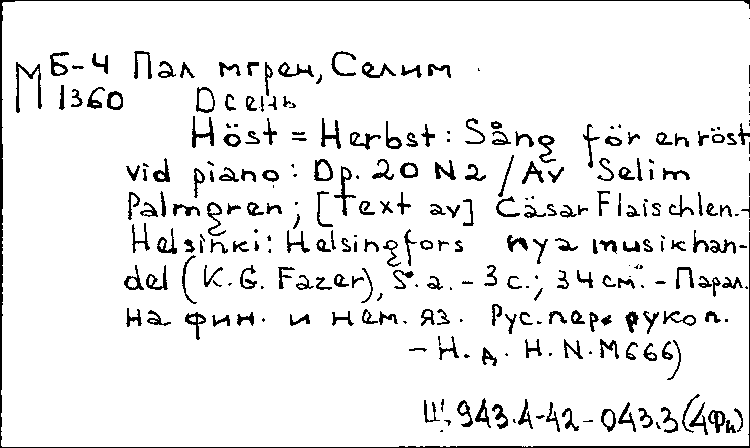 М Б-4 Палмгрен, Селим
1360 Осень
Höst = Herbst: Sång för en röst
vid piano: Op. 20 N 2 / Av Selim
Palmgren; [Text av] Cäsar Flaischlen.-
Helsinki: Helsingfors nya musikhan-
del (K.G. Fazer), S.a. - 3 с.; 34 см. - Парал.
на фин. и нем. яз. Рус. пер. рукоп.
- Н.д. H.N.M666)
Щ 943.4-42-043.3(4Фи)